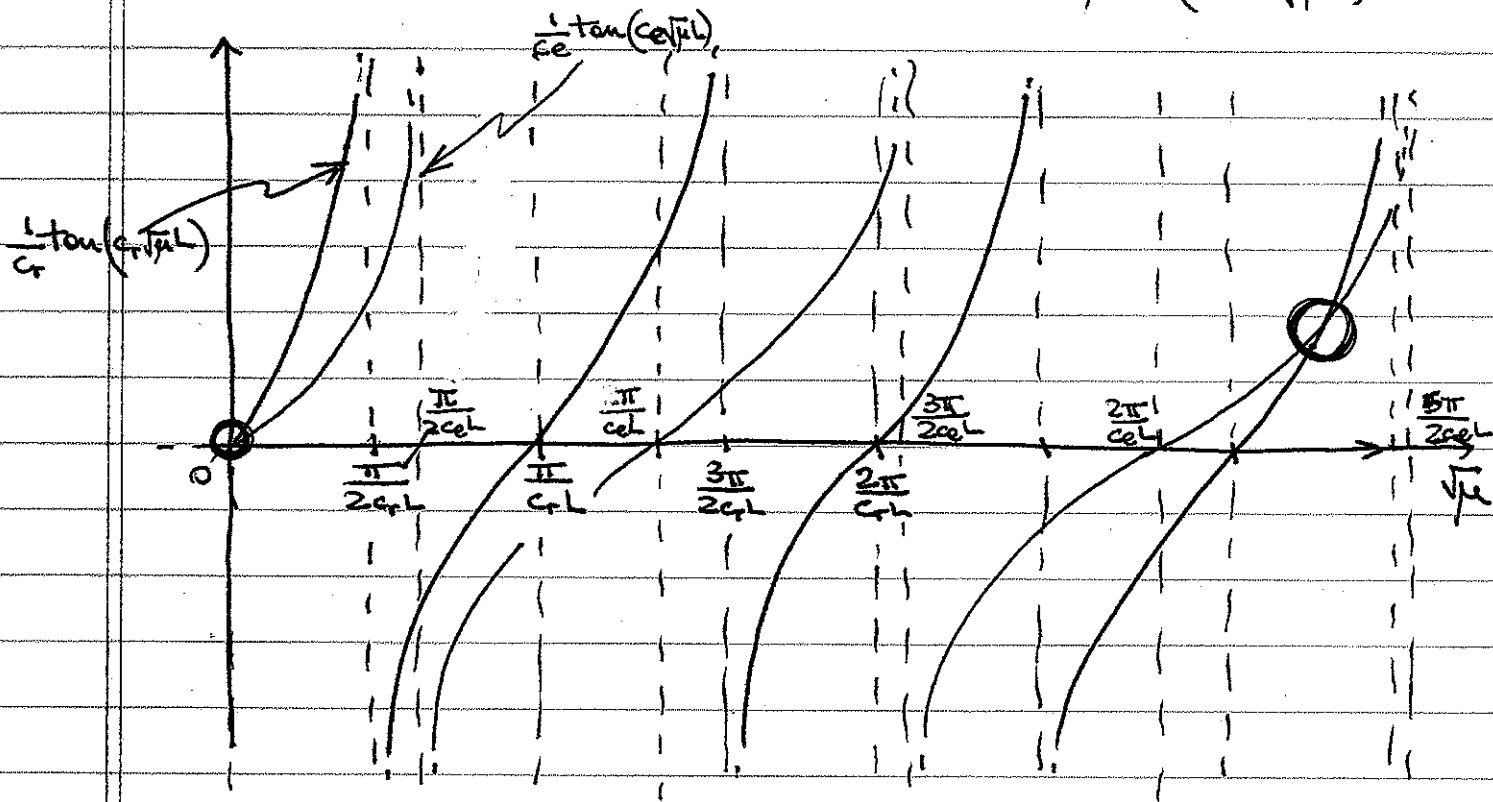 1/ce tan(ce√μL)
1/cr tan(cr√μL)
0
π/2crL
π/2ceL
π/crL
π/ceL
3π/2crL
2π/crL
3π/2ceL
2π/ceL
5π/2ceL
√μ